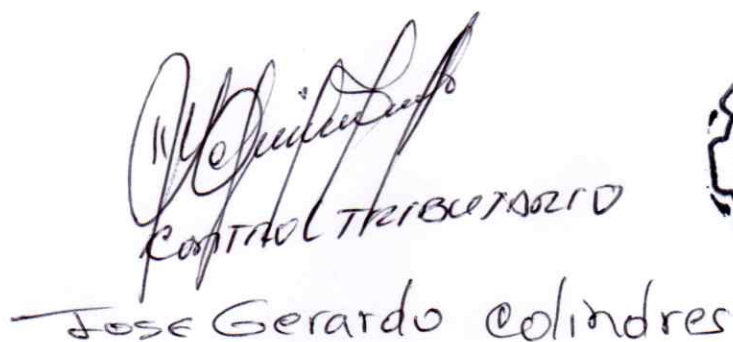 CONTROL TRIBUTARIO
Jose Gerardo Colindres